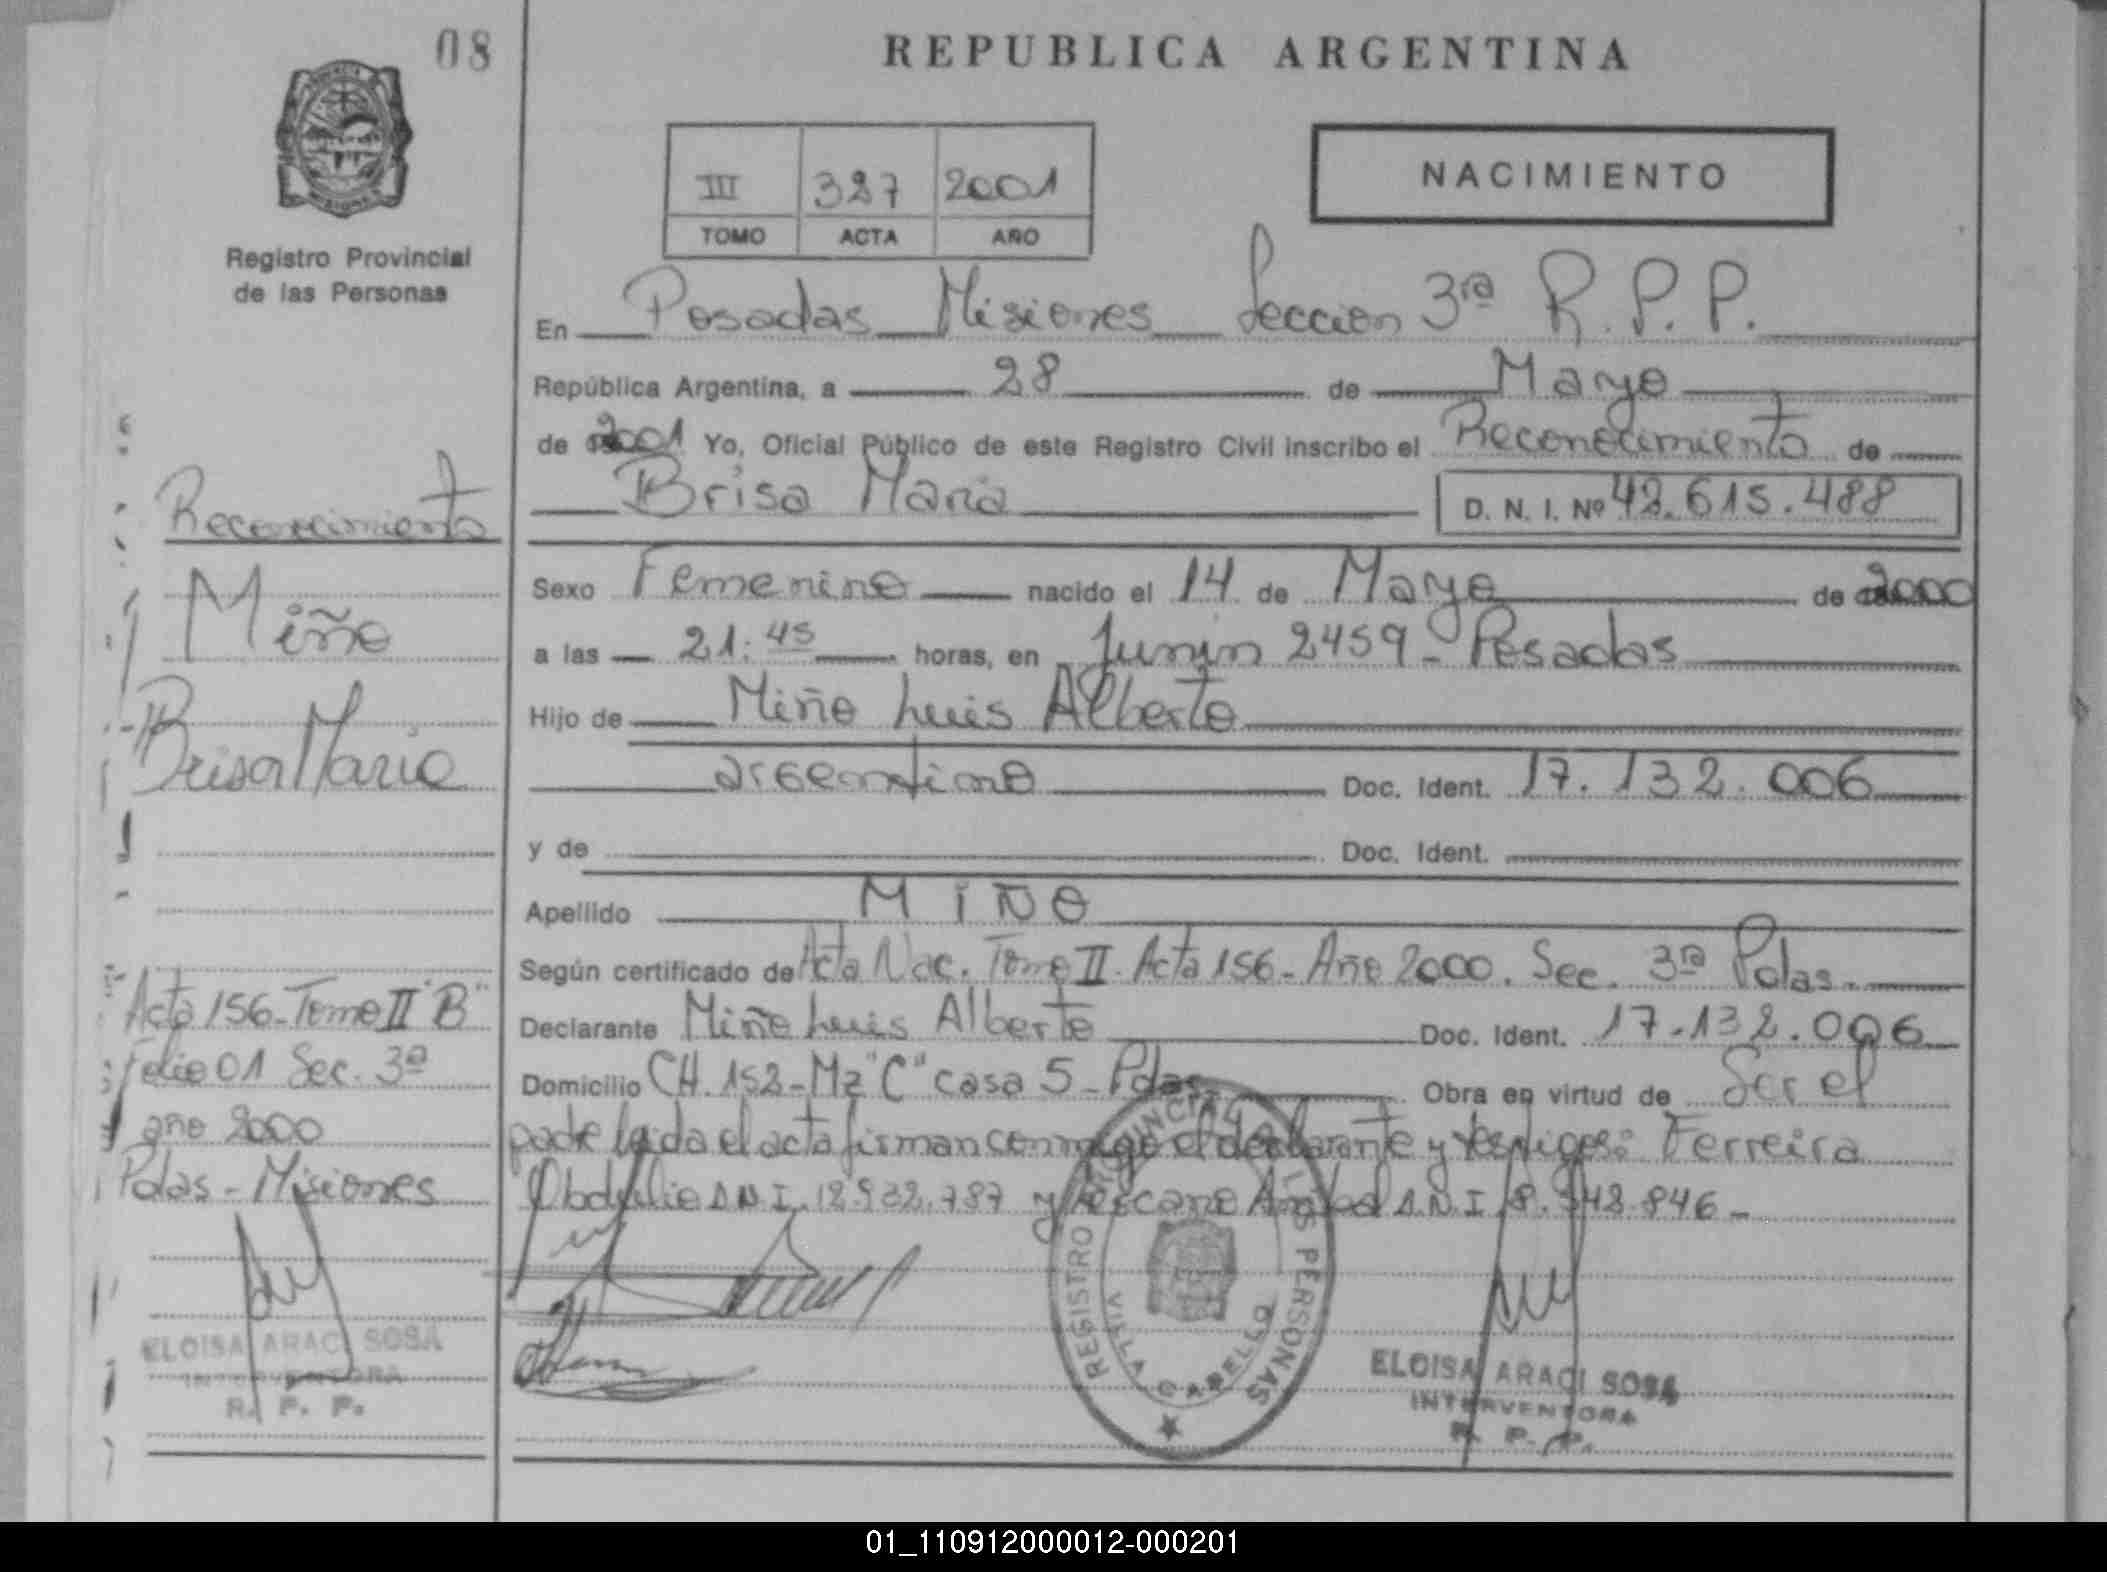 08
REPUBLICA ARGENTINA
III 327 2001
TOMO ACTA AÑO
NACIMIENTO
Registro Provincial
de las Personas
En Posadas Misiones Seccion 3ra R.P.P.
República Argentina, a 28 de Mayo
de 2001 Yo, Oficial Público de este Registro Civil inscribo el Reconocimiento de
Brisa Maria D. N. I. Nº 42.615.488
Sexo Femenino nacido el 14 de Mayo de 2000
a las 21:45 horas, en Junin 2459 - Posadas
Hijo de Miño Luis Alberto
argentino Doc. Ident. 17.132.006
y de Doc. Ident.
Apellido MIÑO
Según certificado de Acta Nac. Tomo II. Acta 156 - Año 2000. Sec. 3ra Pdas.
Declarante Miño Luis Alberto Doc. Ident. 17.132.006
Domicilio CH. 152 - Mz "C" casa 5 - Pdas. Obra en virtud de Ser el
padre leida el acta firman conmigo el declarante y testigos: Ferreira
Obdulio D.N.I. 12.932.787 y D.N.I 8.542.846 -
Reconocimiento
Miño
Brisa Maria
Acta 156 - Tomo II "B"
Folio 01 Sec. 3ª
año 2000
Pdas - Misiones
ELOISA ARACI SOSA
INTERVENTORA
R. P. P.
REGISTRO PROVINCIAL DE LAS PERSONAS
VILLA CABELLO
ELOISA ARACI SOSA
INTERVENTORA
R. P. P.
01_110912000012-000201